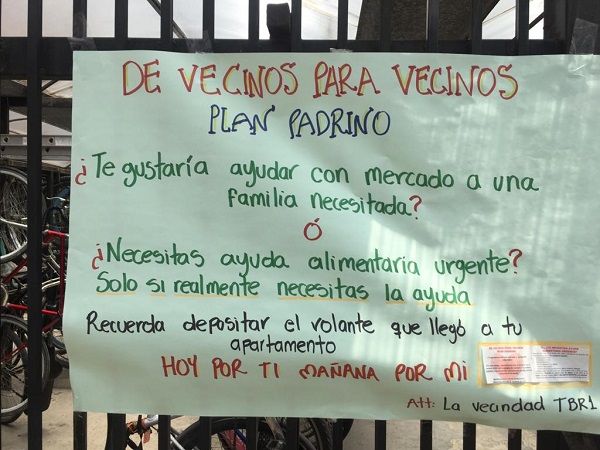 DE VECINOS PARA VECINOS
PLAN PADRINO
¿Te gustaría ayudar con mercado a una
familia necesitada?
Ó
¿Necesitas ayuda alimentaria urgente?
Solo si realmente necesitas la ayuda
Recuerda depositar el volante que llegó a tu
apartamento
HOY POR TI MAÑANA POR MI
Att: La vecindad TBR1